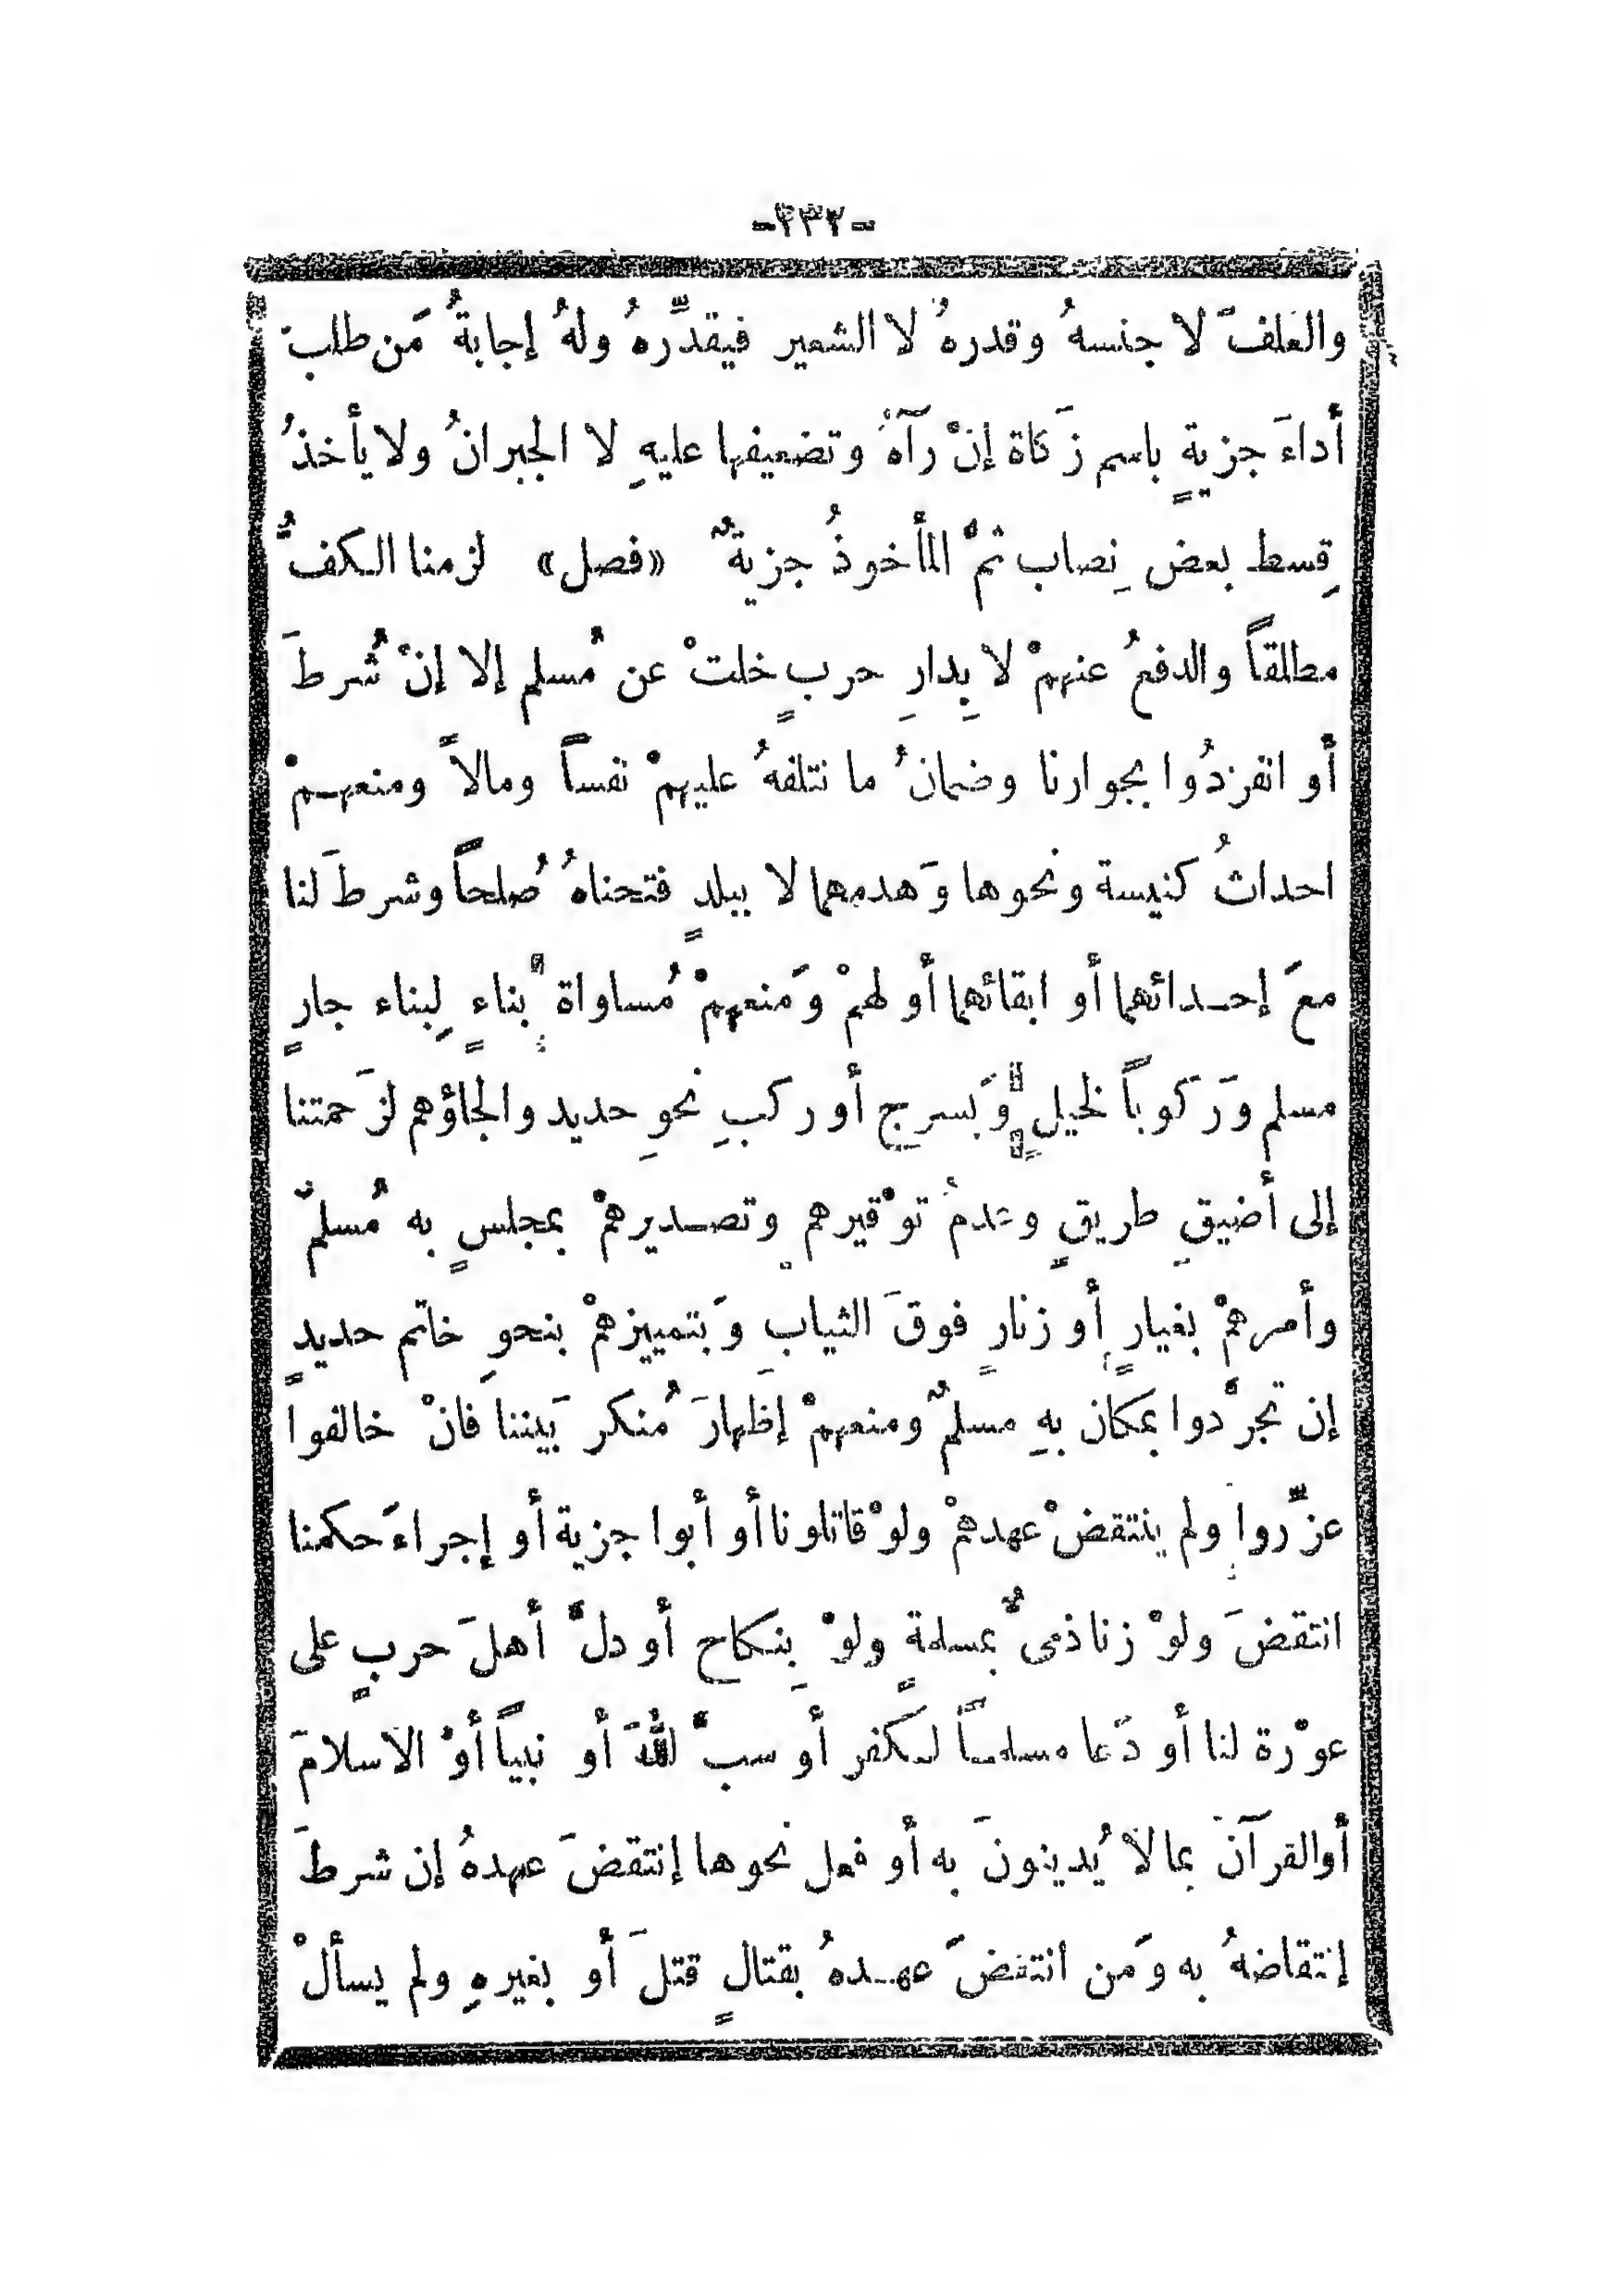 -٢٣٢-
والعلفَ لا جنسهُ وقدرهُ لا الشعير فيقدِّرهُ ولهُ إجابةُ مَن طلبَ
أداءَ جزيةٍ باسم زَكاة إنْ رآهُ وتضعيفها عليهِ لا الجبرانُ ولا يأخذُ
قِسط بعض نِصاب ثمْ المأخوذُ جزيةٌ «فصل» لزمنا الكفُّ
مطلقاً والدفعُ عنهمْ لا بِدارِ حربٍ خلتْ عن مُسلم إلا إنْ شُرطَ
أو انفردُوا بجوارنا وضمانُ ما نتلفهُ عليهمْ نفساً ومالاً ومنعهمْ
احداثُ كنيسة ونحوها وَهدمهما لا ببلدٍ فتحناهُ صُلحاً وشرطَ لنا
معَ إحداثهما أو ابقائهما أو لهمْ وَمنعهمْ مُساواة بناءٍ لِبناء جارٍ
مسلم وَركوباً لخيلٍ وَبسرج أو ركبِ نحوِ حديد والجاؤهم لزَحمتنا
إلى أضيقِ طريقٍ وعدمُ توْقيرهم وتصديرهمْ بمجلسٍ به مُسلمٌ
وأمرهمْ بغيارٍ أو زنارٍ فوقَ الثيابِ وَبتمييزهمْ بنحوِ خاتم حديدٍ
إن تجرَّدوا بمكان بهِ مسلمٌ ومنعهمْ إظهارَ مُنكر بَيننا فانْ خالفوا
عزِّروا ولم ينتقضْ عهدهمْ ولوْ قاتلونا أو أبوا جزية أو إجراءَ حكمنا
انتقضَ ولوْ زنا ذمىٌّ بمسلمةٍ ولوْ بِنكاح أو دلَّ أهلَ حربٍ على
عوْرة لنا أو دَعا مسلماً لكفر أو سبَّ اللهَ أو نبياً أوْ الاسلامَ
أو القرآنَ بما لا يُدينونَ به أو فعل نحوها إنتقضَ عهدهُ إن شرطَ
إنتقاضهُ به وَمن انتقضَ عهدهُ بقتالٍ قتلَ أو بغيرهِ ولم يسألْ